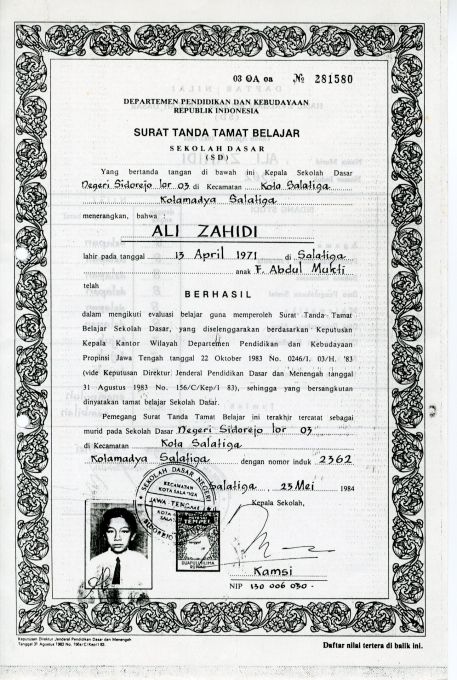 03 OA oa № 281580
DEPARTEMEN PENDIDIKAN DAN KEBUDAYAAN
REPUBLIK INDONESIA
SURAT TANDA TAMAT BELAJAR
SEKOLAH DASAR
(SD)
Yang bertanda tangan di bawah ini Kepala Sekolah Dasar
Negeri Sidorejo lor 03 di Kecamatan Kota Salatiga
Kotamadya Salatiga
menerangkan, bahwa :
ALI ZAHIDI
lahir pada tanggal 13 April 1971 di Salatiga
anak F. Abdul Mukti
telah
BERHASIL
dalam mengikuti evaluasi belajar guna memperoleh Surat Tanda Tamat
Belajar Sekolah Dasar, yang diselenggarakan berdasarkan Keputusan
Kepala Kantor Wilayah Departemen Pendidikan dan Kebudayaan
Propinsi Jawa Tengah tanggal 22 Oktober 1983 No. 0246/I. 03/H. '83
(vide Keputusan Direktur Jenderal Pendidikan Dasar dan Menengah tanggal
31 Agustus 1983 No. 156/C/Kep/I 83), sehingga yang bersangkutan
dinyatakan tamat belajar Sekolah Dasar.
Pemegang Surat Tanda Tamat Belajar ini terakhir tercatat sebagai
murid pada Sekolah Dasar Negeri Sidorejo lor 03
di Kecamatan Kota Salatiga
Kotamadya Salatiga dengan nomor induk 2362
Salatiga, 23 Mei 1984
Kepala Sekolah,
SEKOLAH DASAR NEGERI
KECAMATAN
KOTA SALATIGA
JAWA TENGAH
SIDOREJO
TEMPEL
DUAPULUHLIMA
Kamsi
NIP 130 006 030 -
Keputusan Direktur Jenderal Pendidikan Dasar dan Menengah
Tanggal 31 Agustus 1983 No. 156/C/Kep/I 83.
Daftar nilai tertera di balik ini.